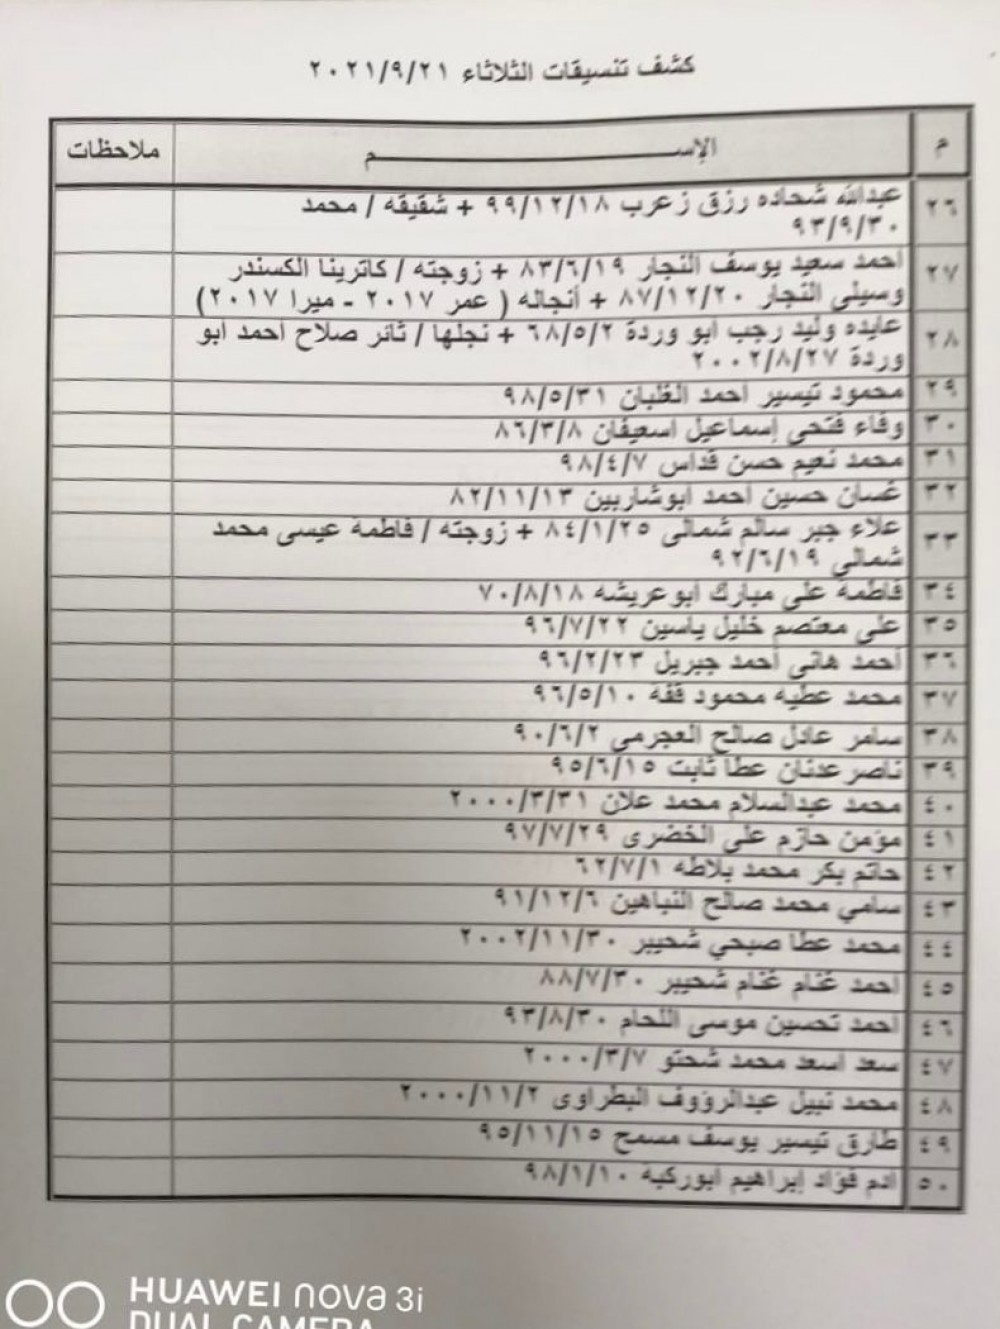 كشف تنسيقات الثلاثاء ٢٠٢١/٩/٢١
م الإســـــــــــــــم ملاحظات
٢٦ عبدالله شحاده رزق زعرب ٩٩/١٢/١٨ + شقيقه / محمد
٩٣/٩/٣٠
٢٧ احمد سعيد يوسف النجار ٨٣/٦/١٩ + زوجته / كاترينا الكسندر
وسيلي النجار ٨٧/١٢/٢٠ + أنجاله ( عمر ٢٠١٧ - ميرا ٢٠١٧)
٢٨ عايده وليد رجب ابو وردة ٦٨/٥/٢ + نجلها / ثائر صلاح احمد ابو
وردة ٢٠٠٢/٨/٢٧
٢٩ محمود تيسير احمد الغلبان ٩٨/٥/٣١
٣٠ وفاء فتحي إسماعيل اسعيفان ٨٦/٣/٨
٣١ محمد نعيم حسن قداس ٩٨/٤/٧
٣٢ غسان حسين احمد ابوشاربين ٨٢/١١/١٣
٣٣ علاء جبر سالم شمالى ٨٤/١/٢٥ + زوجته / فاطمة عيسى محمد
شمالي ٩٢/٦/١٩
٣٤ فاطمة على مبارك ابوعريشه ٧٠/٨/١٨
٣٥ على معتصم خليل ياسين ٩٦/٧/٢٢
٣٦ أحمد هانى أحمد جبريل ٩٦/٢/٢٣
٣٧ محمد عطيه محمود فقة ٩٦/٥/١٠
٣٨ سامر عادل صالح العجرمي ٩٠/٦/٢
٣٩ ناصر عدنان عطا ثابت ٩٥/٦/١٥
٤٠ محمد عبدالسلام محمد علان ٢٠٠٠/٣/٣١
٤١ مؤمن حازم على الخضرى ٩٧/٧/٢٩
٤٢ حاتم بكر محمد بلاطه ٦٢/٧/١
٤٣ سامي محمد صالح النباهين ٩١/١٢/٦
٤٤ محمد عطا صبحي شحيبر ٢٠٠٢/١١/٣٠
٤٥ احمد غنام غنام شحيبر ٨٨/٧/٣٠
٤٦ احمد تحسين موسى اللحام ٩٣/٨/٣٠
٤٧ سعد اسعد محمد شحتو ٢٠٠٠/٣/٧
٤٨ محمد نبيل عبدالرؤوف البطراوى ٢٠٠٠/١١/٢
٤٩ طارق تيسير يوسف مسمح ٩٥/١١/١٥
٥٠ ادم فؤاد إبراهيم ابوركبة ٩٨/١/١٠
HUAWEI nova 3i
DUAL CAMERA